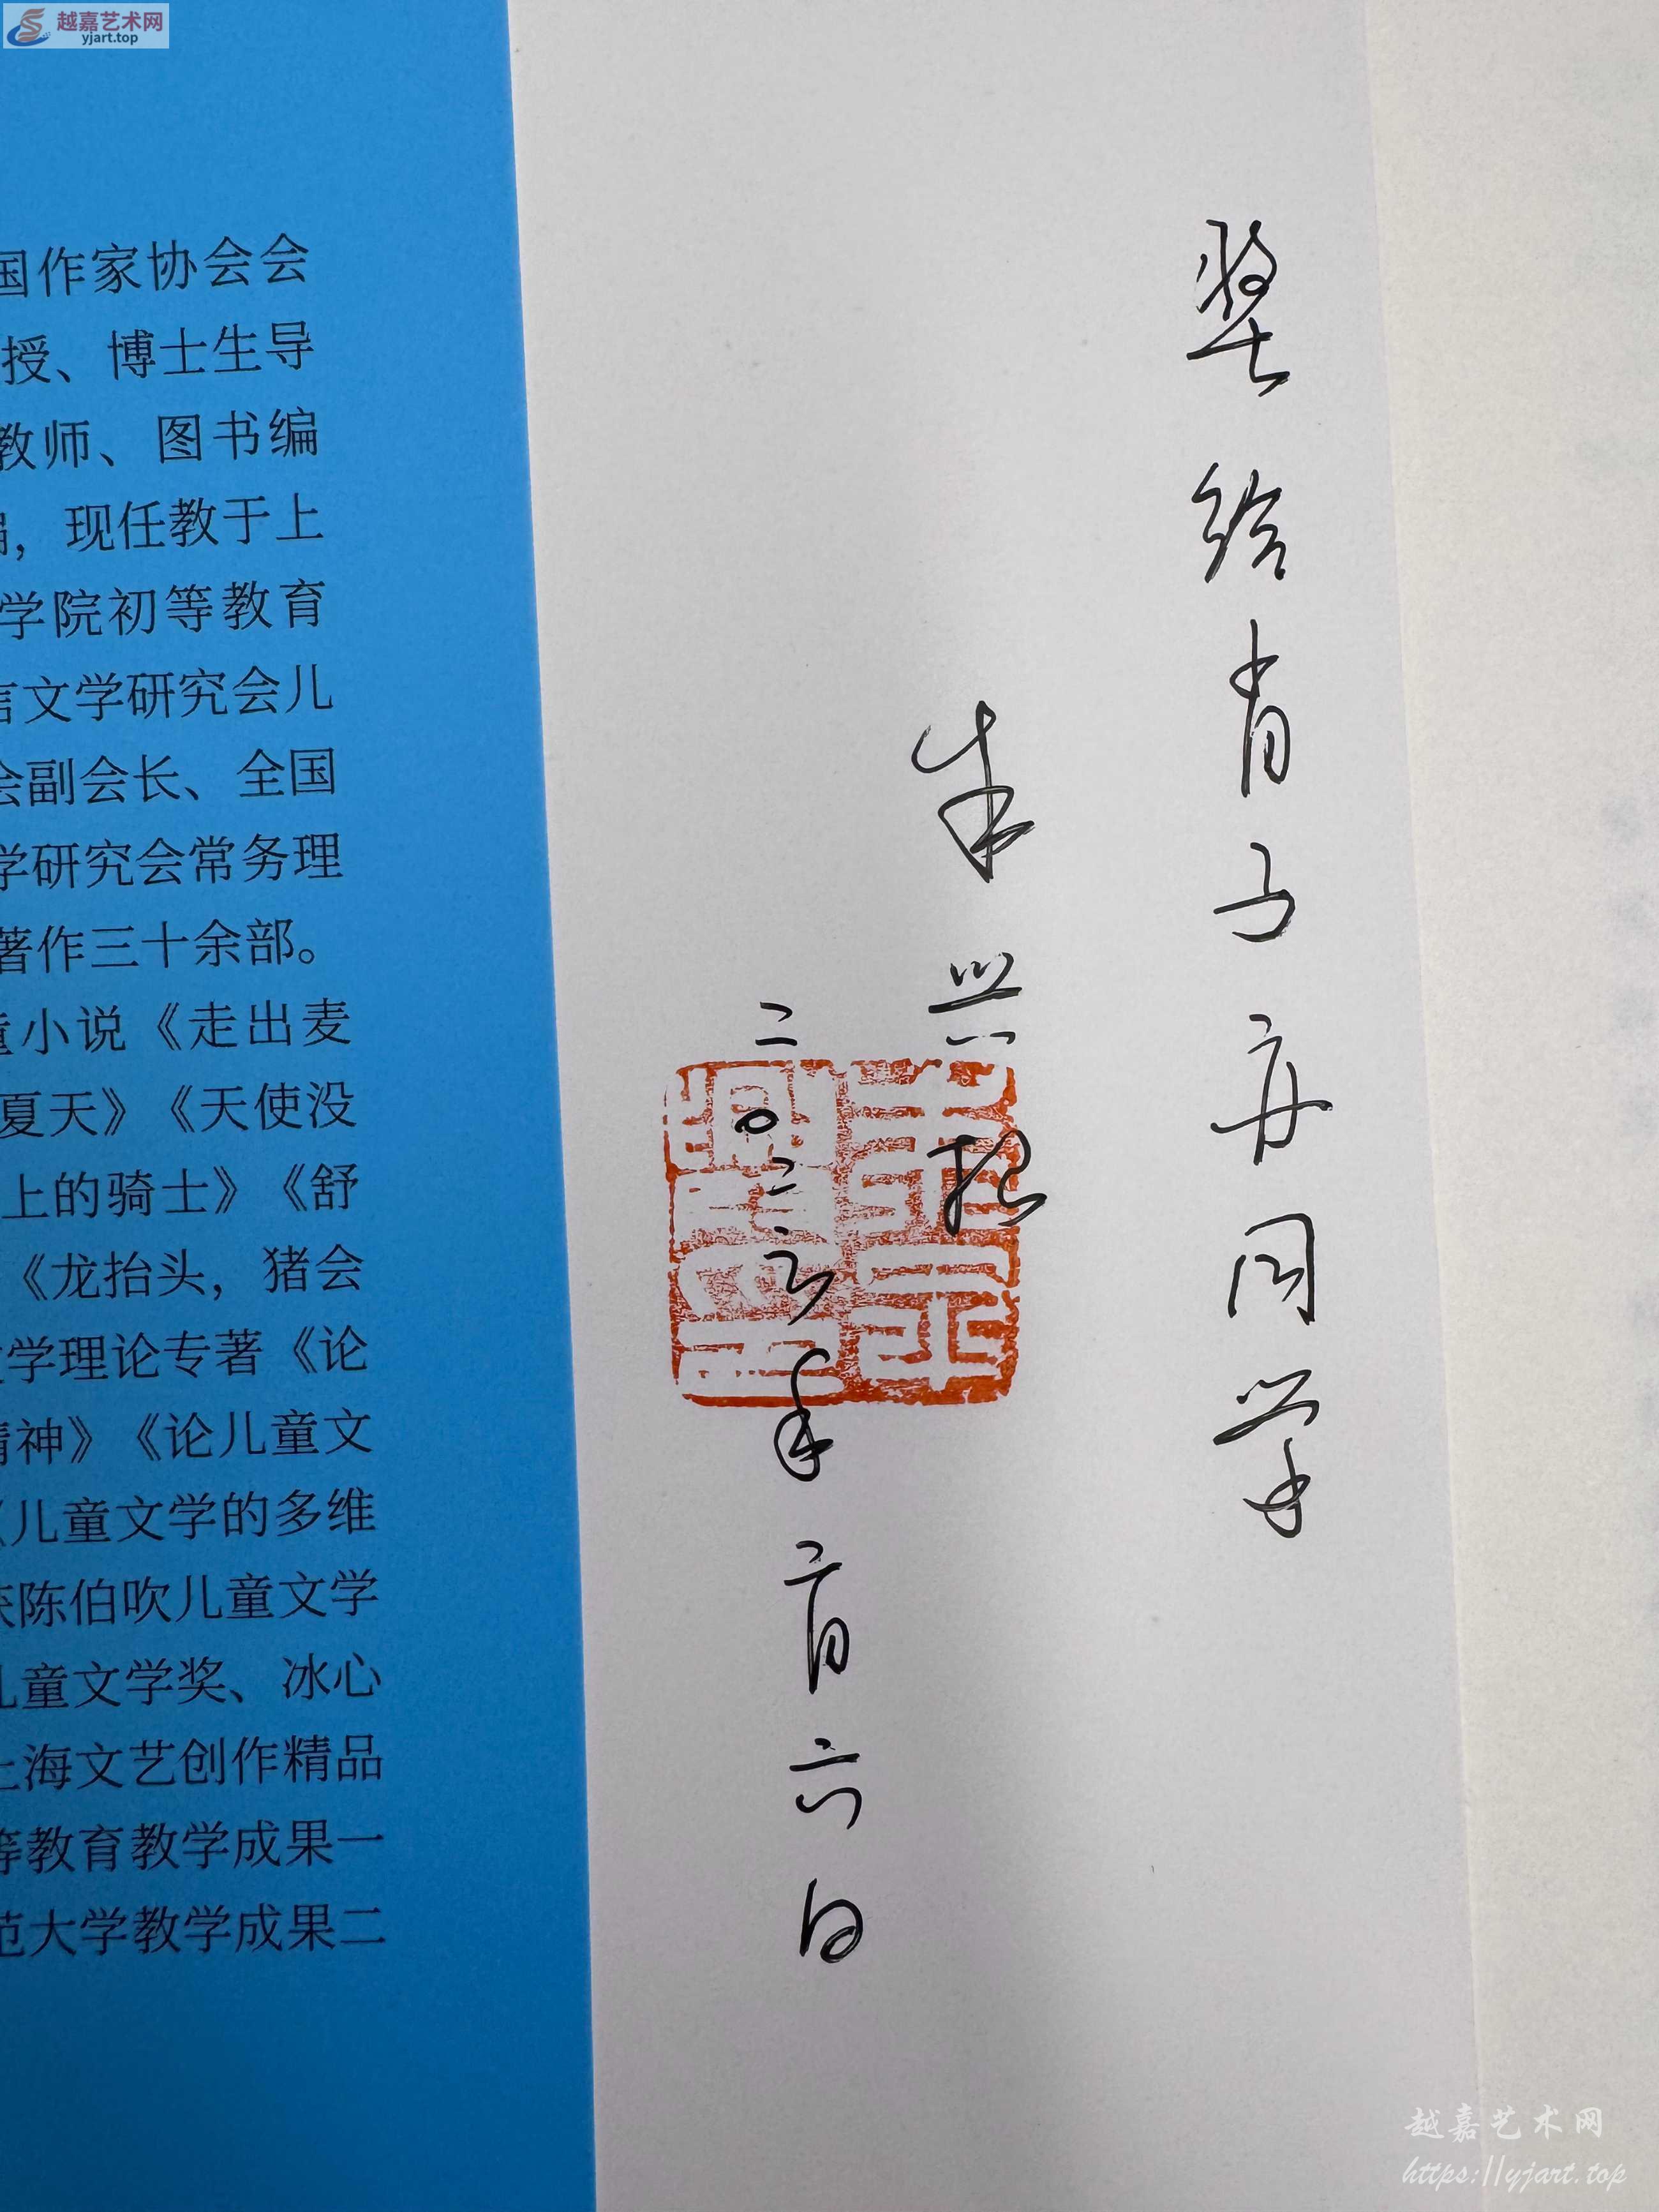 越嘉艺术网
yjart.top
国作家协会会
授、博士生导
教师、图书编
，现任教于上
学院初等教育
言文学研究会儿
会副会长、全国
学研究会常务理
著作三十余部。
童小说《走出麦
夏天》《天使没
上的骑士》《舒
《龙抬头，猪会
文学理论专著《论
精神》《论儿童文
《儿童文学的多维
获陈伯吹儿童文学
儿童文学奖、冰心
上海文艺创作精品
等教育教学成果一
范大学教学成果二
给肖子同学
朱兴
二〇二三年月六日
越嘉艺术网
https://yjart.top